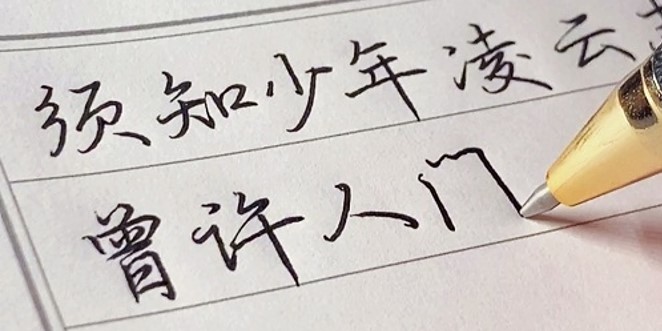 须知少年凌云
曾许人